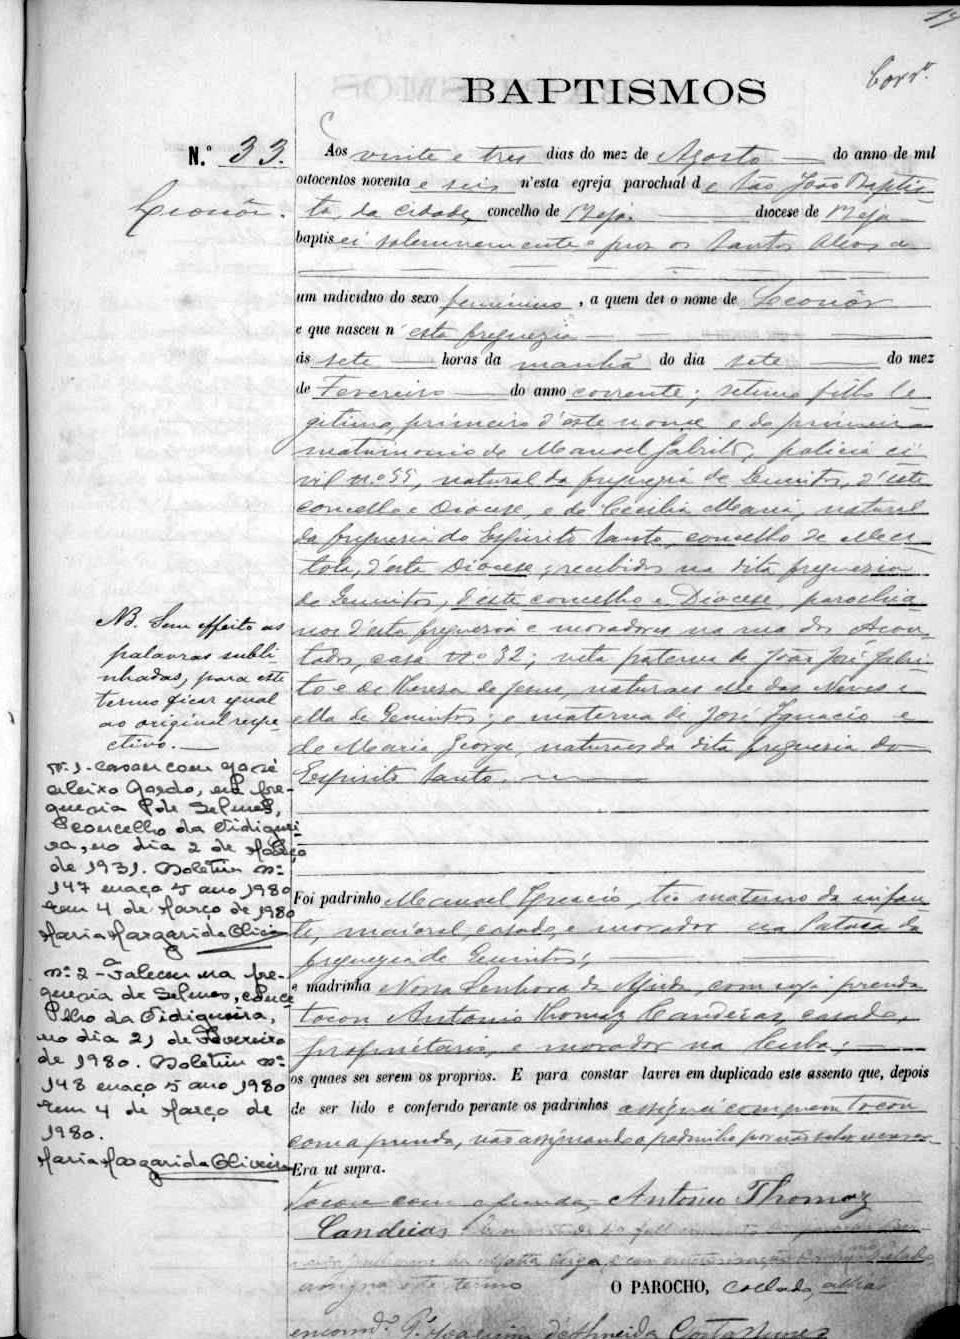 BAPTISMOS
N.º 33.
Leonôr.
Aos vinte e tres dias do mez de Agosto do anno de mil
oitocentos noventa e seis n'esta egreja parochial de São João Baptis-
ta, da cidade, concelho de Beja diocese de Beja
baptisei solemnemente e puz os Santos Oleos a
um individuo do sexo feminino, a quem dei o nome de Leonôr
e que nasceu n'esta freguezia
ás sete horas da manhã do dia sete do mez
de Fevereiro do anno corrente; setimo filho le-
gitimo, primeiro d'este nome e do primeiro
matrimonio de Manoel Gabrito, policia ci-
vil n.º 55, natural da freguezia de Quintos, d'este
concelho e Diocese, e de Cecilia Maria, natural
da freguesia do Espirito Santo, concelho de Mer-
tola, d'esta Diocese; recebidos na dita freguezia
de Quintos, d'este concelho e Diocese, parochia-
nos d'esta freguezia e moradores na rua dos Açou-
tados, casa n.º 32; neta paterna de João José Gabri-
to e de Thereza de Jesus, naturaes elle das Neves e
ella de Quintos; e materna de José Ignacio e
de Maria George, naturaes da dita freguezia do
Espirito Santo.
NB. Sem effeito as
palavras subli-
nhadas, para este
termo ficar igual
ao original respe-
ctivo.
Nº. 1 - Casou com José
Aleixo Gordo, na fre-
guezia de Selmes,
concelho da Vidiguei-
ra, no dia 2 de Março
de 1931. Boletim nº
147 maço 5 ano 1980
Em 4 de Março de 1980
Maria Margarida Oliveira
Nº 2 - Faleceu na fre-
guezia de Selmes, conce-
lho da Vidigueira,
no dia 21 de Fevereiro
de 1980. Boletim nº
148 maço 5 ano 1980
Em 4 de Março de
1980.
Maria Margarida Oliveira
Foi padrinho Manoel Ignacio, tio materno da infan-
te, maioral, casado, e morador na da
freguezia de Quintos;
e madrinha Nossa Senhora da Ajuda, com cuja prenda
tocou Antonio Thomaz Candeias, casado,
proprietario, e morador na Cuba;
os quaes sei serem os proprios. E para constar lavrei em duplicado este assento que, depois
de ser lido e conferido perante os padrinhos assignei com quem tocou
com a prenda, não assignando o padrinho por não saber escrever
Era ut supra.
Tocou com a prenda, Antonio Thomaz
Candeias
assigna este termo O PAROCHO, collado,
encomd.º P.e Joaquim d'Almeida Costa Nunes